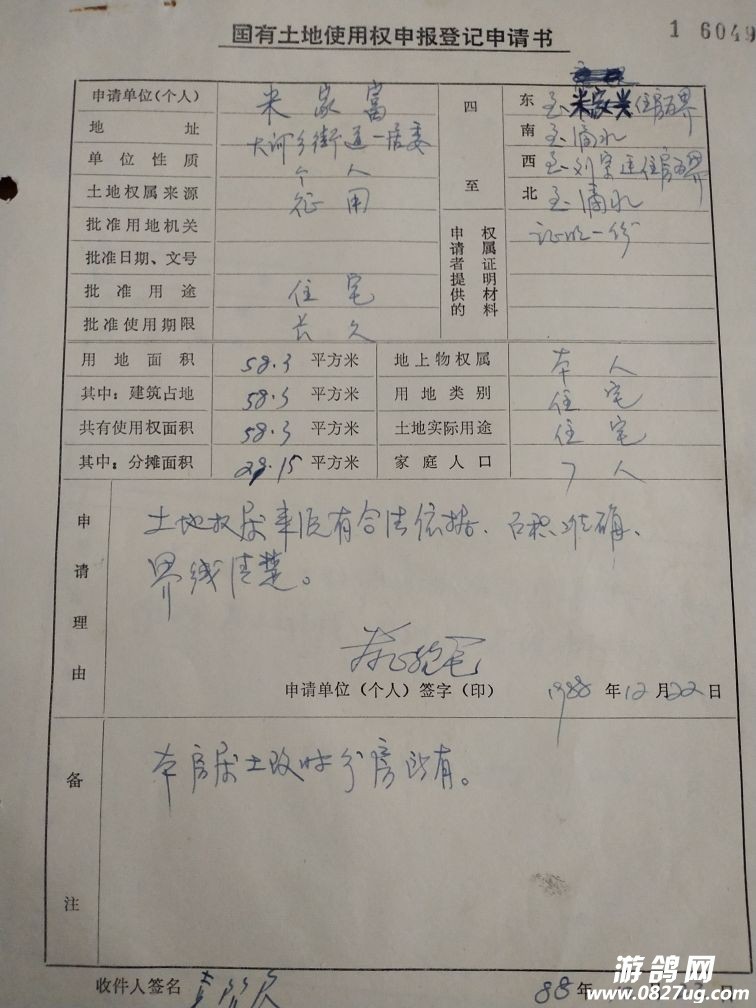 国有土地使用权申报登记申请书
1 6049
申请单位(个人) 米家富
地 址 大河乡街道一居委
单位性质 个人
土地权属来源 征用
批准用地机关
批准日期、文号
批准用途 住宅
批准使用期限 长久
四至
东 至米家兴住房为界
南 至滴水
西 至刘宗 住房为界
北 至滴水
申请者提供的权属证明材料 证明一份
用地面积 58.3 平方米 地上物权属 本人
其中:建筑占地 58.3 平方米 用地类别 住宅
共有使用权面积 58.3 平方米 土地实际用途 住宅
其中:分摊面积 29.15 平方米 家庭人口 7人
申请理由
土地权属来源有合法依据、面积准确、
界线清楚。
申请单位(个人)签字(印) 1988年12月22日
备注
本房屋土改时分房所有。
收件人签名 88年
游鸽网
www.0827ug.com